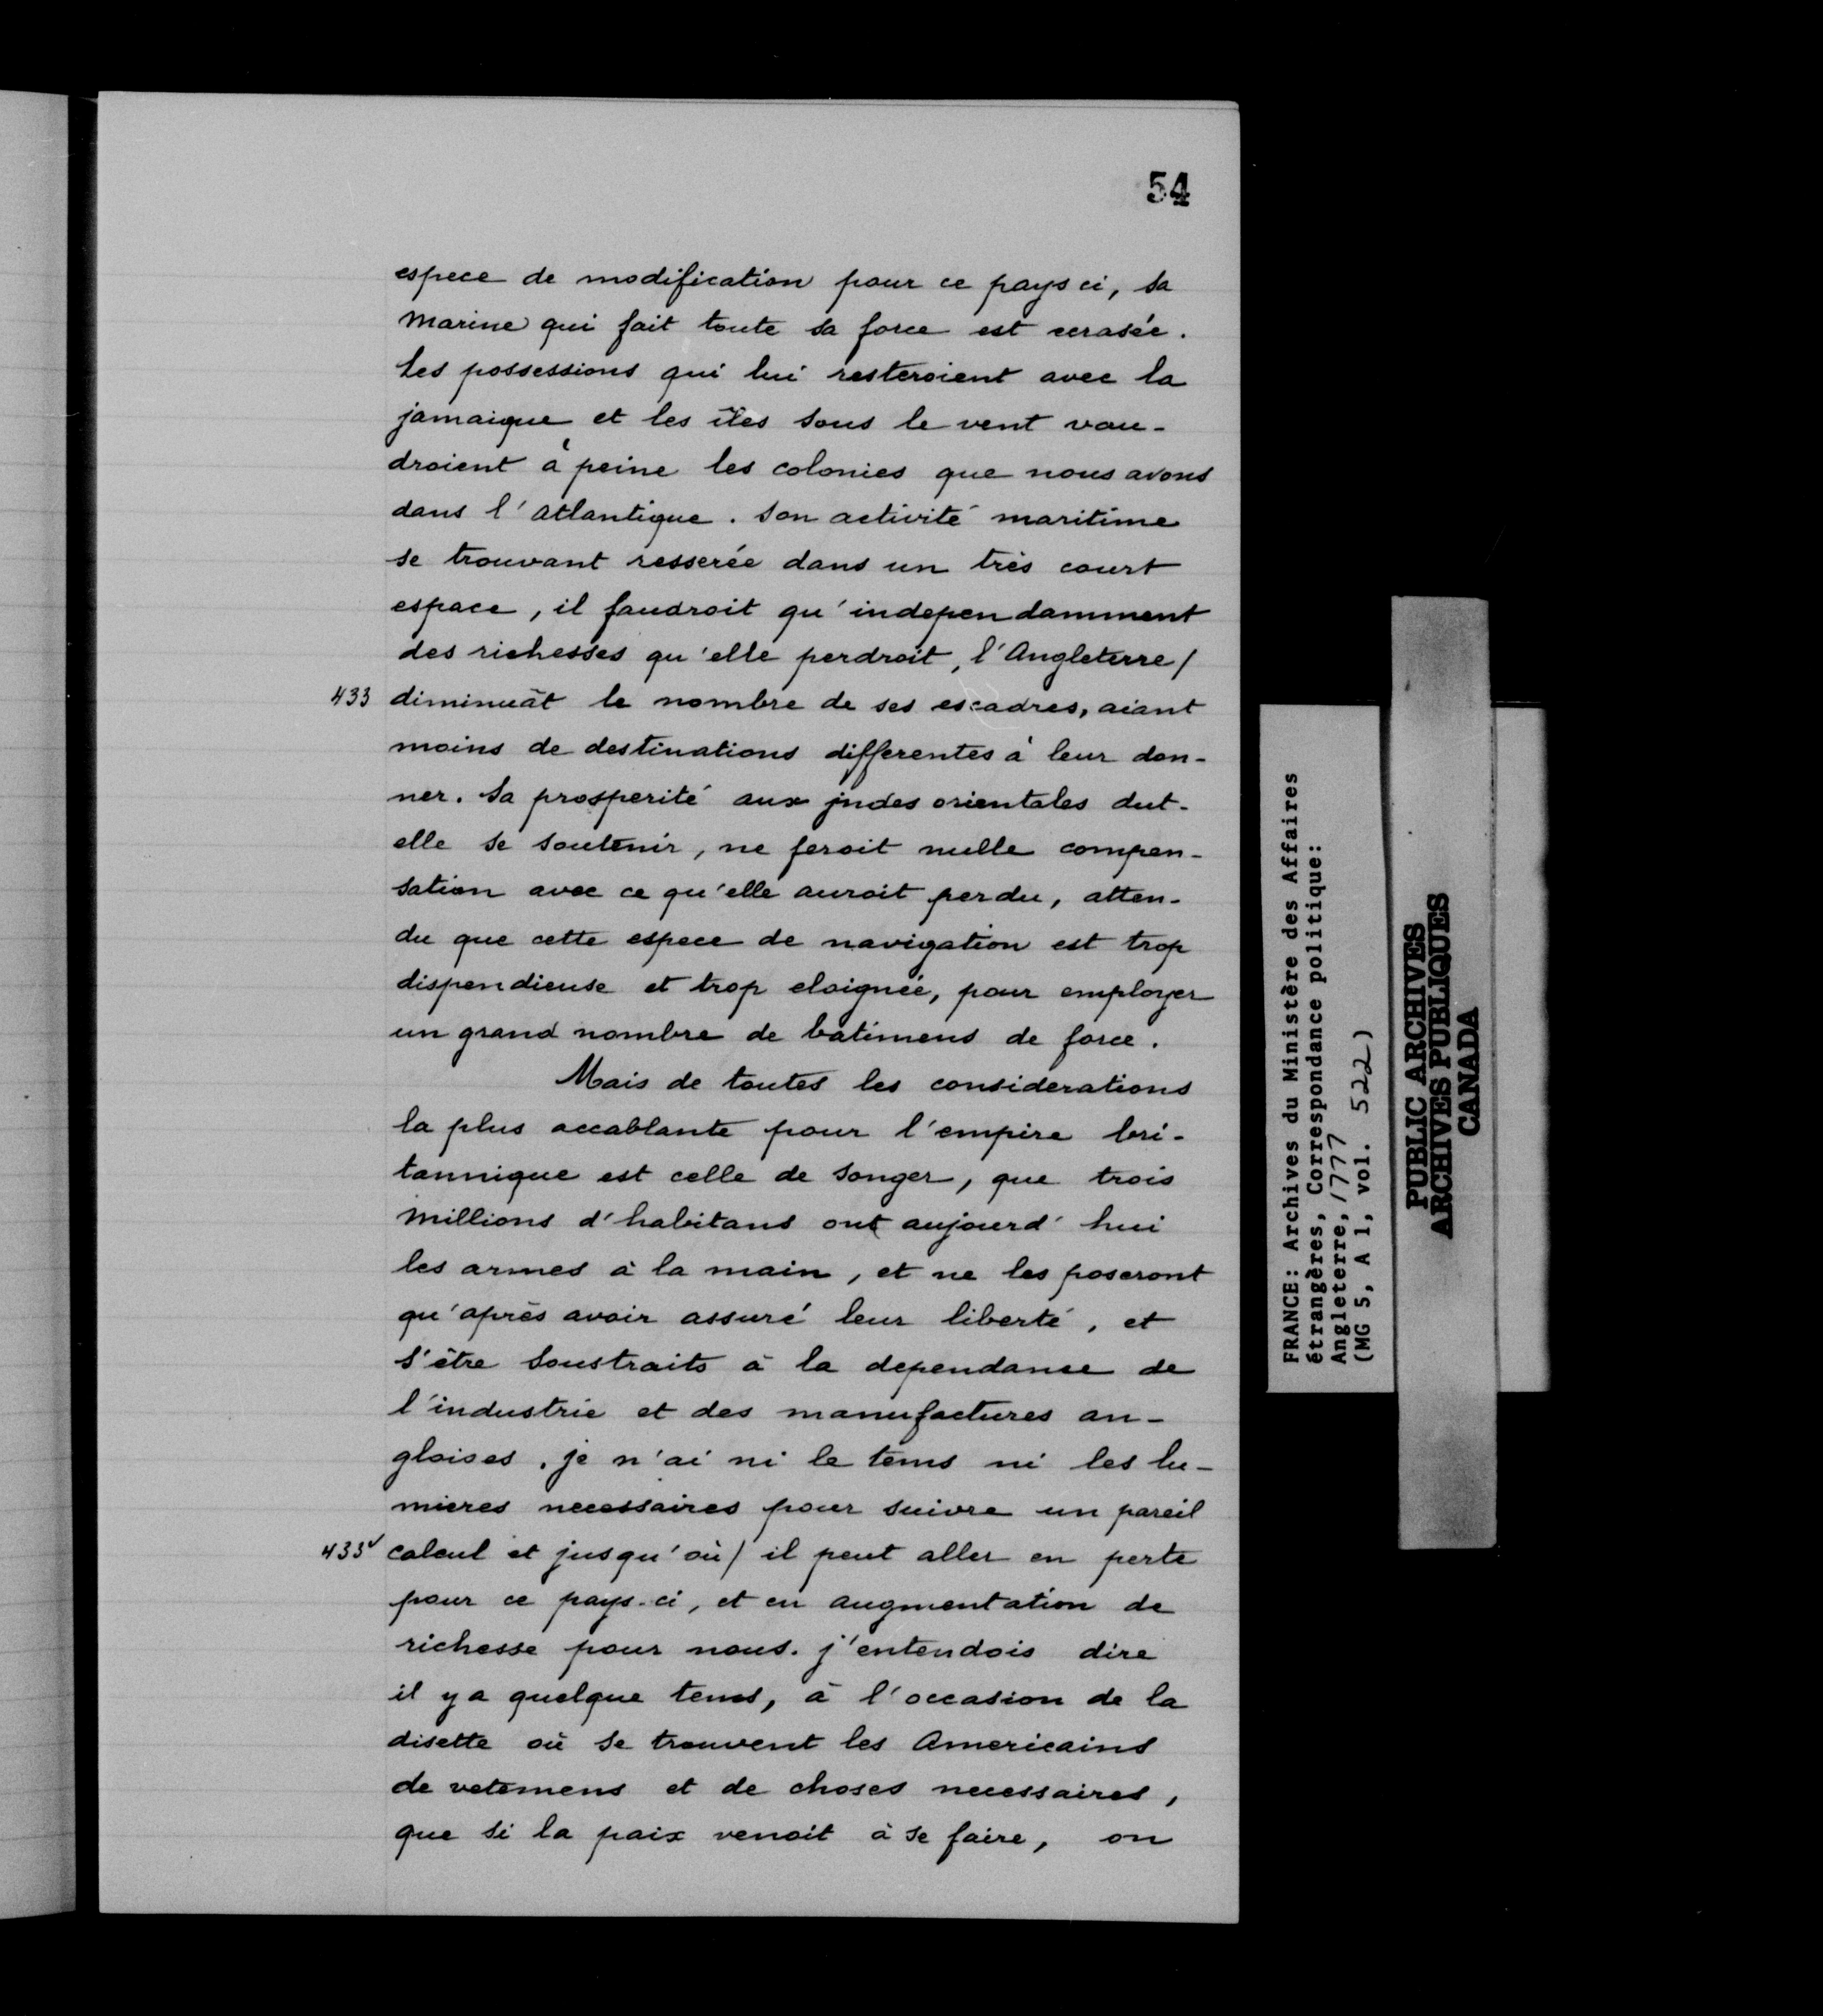 54
espece de modification pour ce pays ci, sa
marine qui fait toute sa force est ecrasée.
Les possessions qui lui resteroient avec la
jamaique et les îles sous le vent vau-
droient à peine les colonies que nous avons
dans l'atlantique. Son activité maritime
se trouvant resserée dans un très court
espace, il faudroit qu'independamment
des richesses qu'elle perdroit, l'Angleterre/
433 diminuât le nombre de ses escadres, aiant
moins de destinations differentes à leur don-
ner. Sa prosperité aux jndes orientales dut-
elle se soutenir, ne feroit nulle compen-
sation avec ce qu'elle auroit perdu, atten-
du que cette espece de navigation est trop
dispendieuse et trop eloignée, pour employer
un grand nombre de batimens de force.
Mais de toutes les considerations
la plus accablante pour l'empire bri-
tannique est celle de songer, que trois
millions d'habitans ont aujourd'hui
les armes à la main, et ne les poseront
qu'après avoir assuré leur liberté, et
s'être soustraits à la dependance de
l'industrie et des manufactures an-
gloises. je n'ai ni le tems ni les lu-
mieres necessaires pour suivre un pareil
433v calcul et jusqu'où/ il peut aller en perte
pour ce pays-ci, et en augmentation de
richesse pour nous. j'entendois dire
il y a quelque tems, à l'occasion de la
disette où se trouvent les Americains
de vetemens et de choses necessaires,
que si la paix venoit à se faire, on
FRANCE: Archives du Ministère des Affaires
étrangères, Correspondance politique:
Angleterre, 1777
(MG 5, A 1, vol. 522)
PUBLIC ARCHIVES
ARCHIVES PUBLIQUES
CANADA